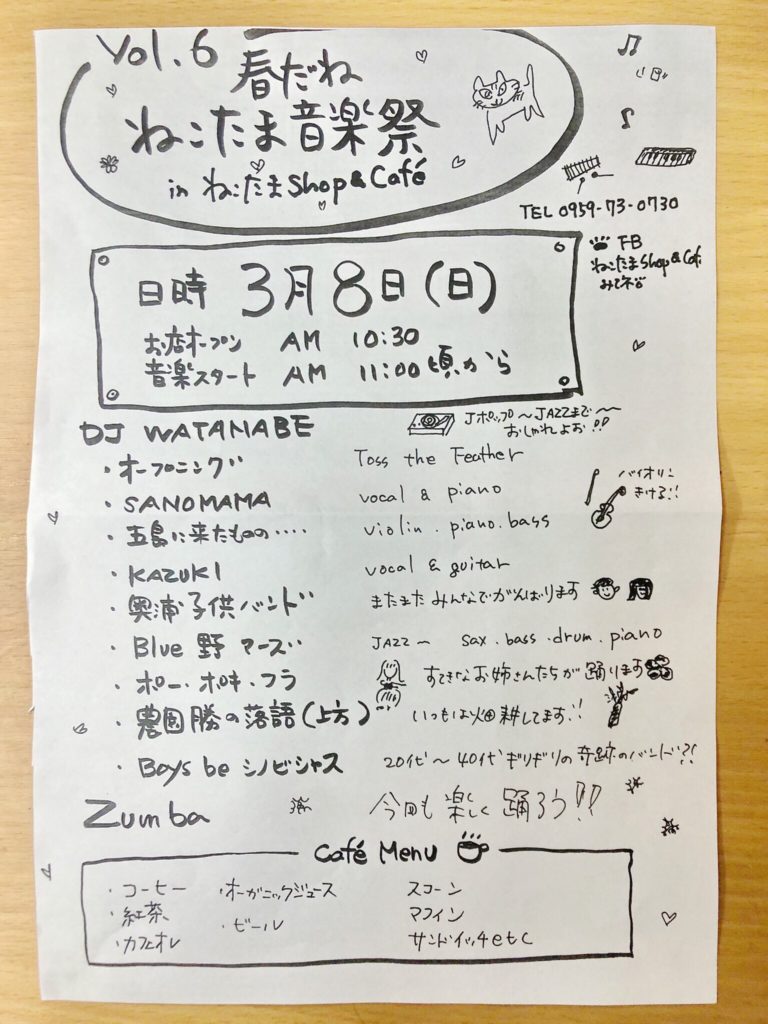 Vol.6
春だね
ねこたま音楽祭
in ねこたまShop&Café
TEL 0959-73-0730
FB
ねこたまShop&Caf
みてネ
日時 3月8日(日)
お店オープン AM 10:30
音楽スタート AM 11:00頃から
DJ WATANABE Jポップ〜JAZZまで〜
おしゃれよお!!
・オープニング Toss the Feather
・SANOMAMA vocal & piano
バイオリン
きける!!
・五島に来たものの‥‥ violin.piano.bass
・KAZUKI vocal & guitar
・奥浦子供バンド またまたみんなでがんばります
・Blue 野 アーズ JAZZ〜 sax.bass.drum.piano
・ポー・ポキ・フラ すてきなお姉さんたちが踊ります
・農園勝の落語(上方) いつもは畑耕してます!!
・Boys be シノビシャス 20代〜40代ギリギリの奇跡のバンド?!
Zumba 今回も楽しく踊ろう!!
Café Menu
・コーヒー ・オーガニックジュース スコーン
・紅茶 ・ビール マフィン
・カフェオレ サンドイッチetc